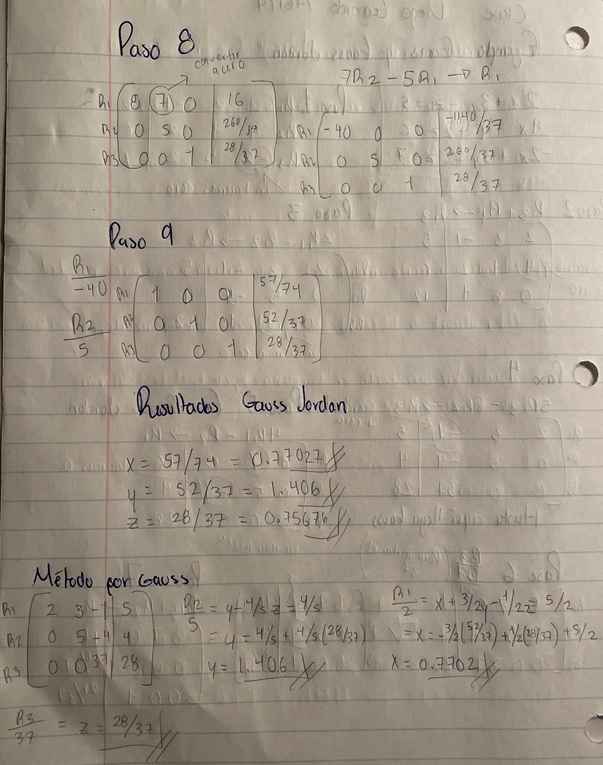 Paso 8
convertir
a uno
7R2 - 5R1 → R1
R1 8 7 0 16
R2 0 5 0 260/37
R3 0 0 1 28/37
R1 -40 0 0 -1140/37
R2 0 5 0 260/37
R3 0 0 1 28/37
Paso 9
R1/-40 R1 1 0 0 57/74
R2/5 R2 0 1 0 52/37
R3 0 0 1 28/37
Resultados Gauss Jordan
x = 57/74 = 0.77027
y = 52/37 = 1.406
z = 28/37 = 0.75676
Método por Gauss
R1 2 3 -1 5
R2 0 5 -4 4
R3 0 0 37 28
R2/5 = y - 4/5 z = 4/5
= y = 4/5 + 4/5 (28/37)
y = 1.406
R1/2 = x + 3/2 y - 1/2 z = 5/2
= x = -3/2 (52/37) + 1/2 (28/37) + 5/2
x = 0.7702
R3/37 = z = 28/37